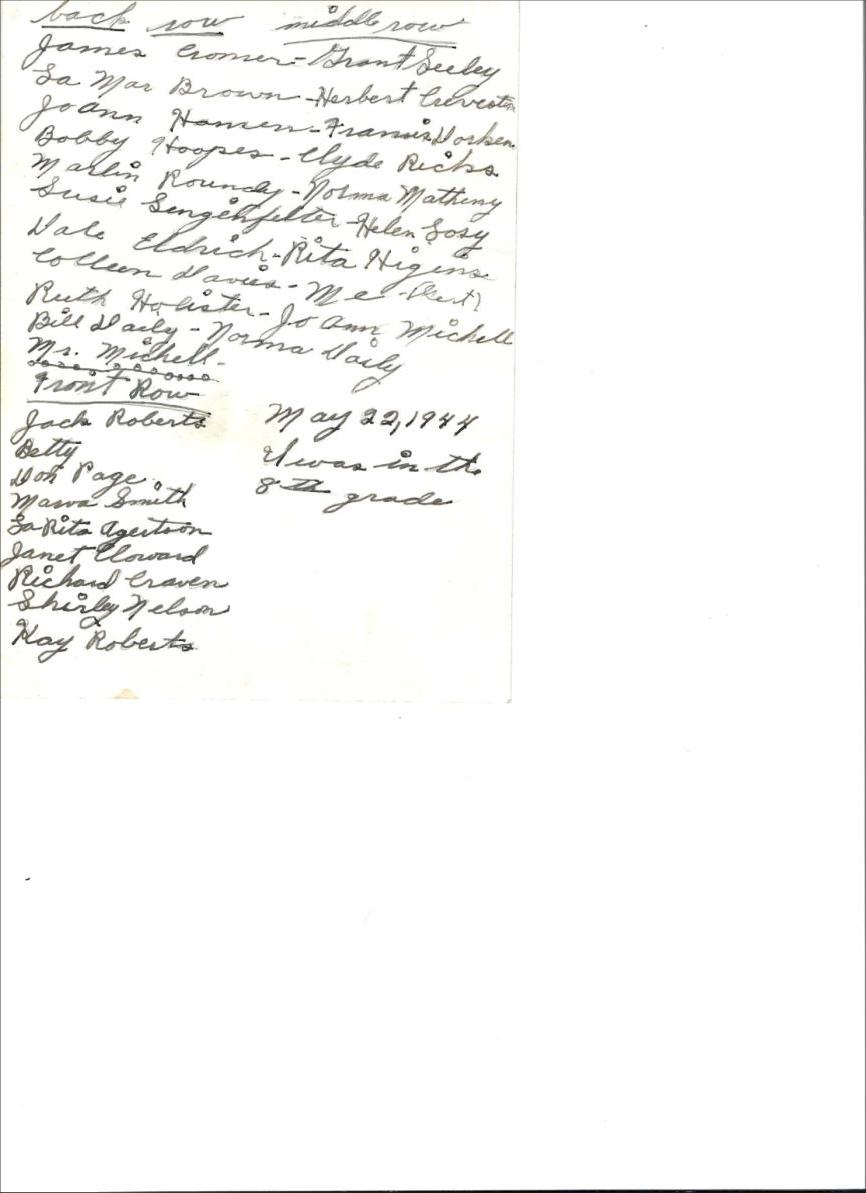 back row middle row
James Cromer - Grant Seeley
La Mar Brown - Herbert Creveston
JoAnn Hansen - Francis Dorken
Bobby Hoopes - Clyde Ricks
Marlin Roundy - Norma Matheny
Susie Lengenfelter - Helen Sosy
Dale Eldrich - Rita Higins
Colleen Davis - Me -
Ruth Holister - Jo Ann Michell
Bill Daily - Norma Daily
Mr. Michell -
Front Row
Jack Roberts
Betty
Don Page
Marva Smith
LaRita Agertson
Janet Cloward
Richard Craven
Shirley Nelson
Kay Roberts
May 22, 1944
I was in the
8th grade